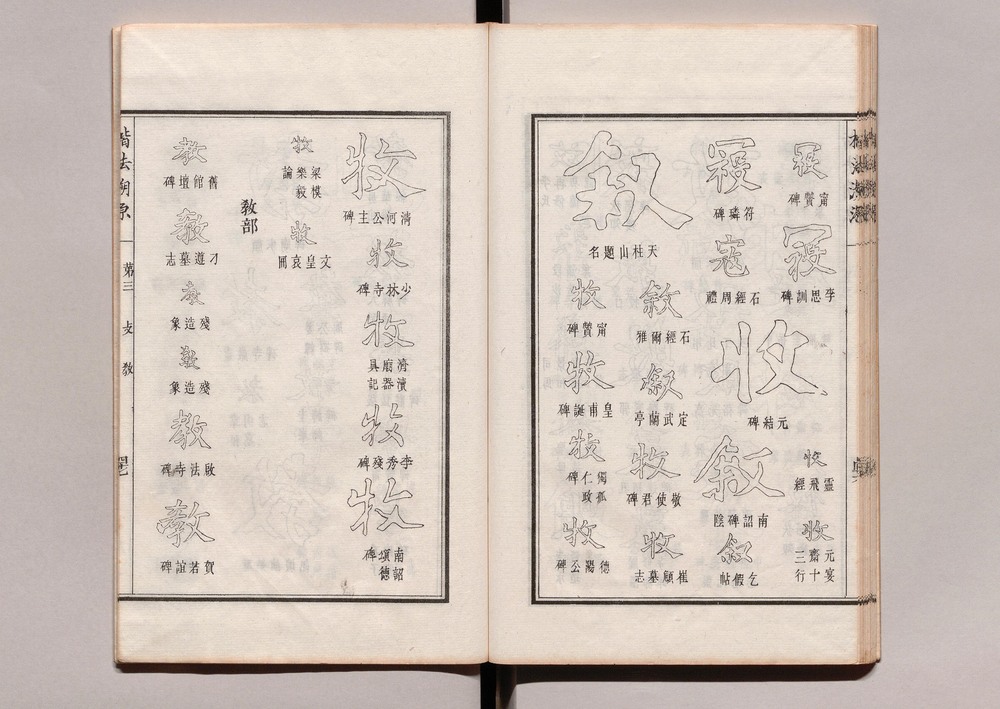 寇
甯贊碑
寇
李思訓碑
收
靈飛經
收
元宴齋十三行
寇
符璘碑
寇
石經周禮
收
元結碑
敘
南詔碑陰
叙
乞假帖
敍
天柱山題名
敘
石經爾雅
叙
定武蘭亭
牧
敬使君碑
牧
崔頠墓志
牧
甯贊碑
牧
皇甫誕碑
牧
獨孤仁政碑
牧
德陽公碑
牧
清河公主碑
牧
少林寺碑
牧
濟瀆廟器具記
牧
李秀殘碑
牧
南詔德頌碑
牧
梁模樂毅論
牧
文皇哀冊
教部
教
舊館壇碑
教
刁遵墓志
教
殘造象
教
殘造象
教
啟法寺碑
教
賀若誼碑
楷法溯原
第三
攴
教